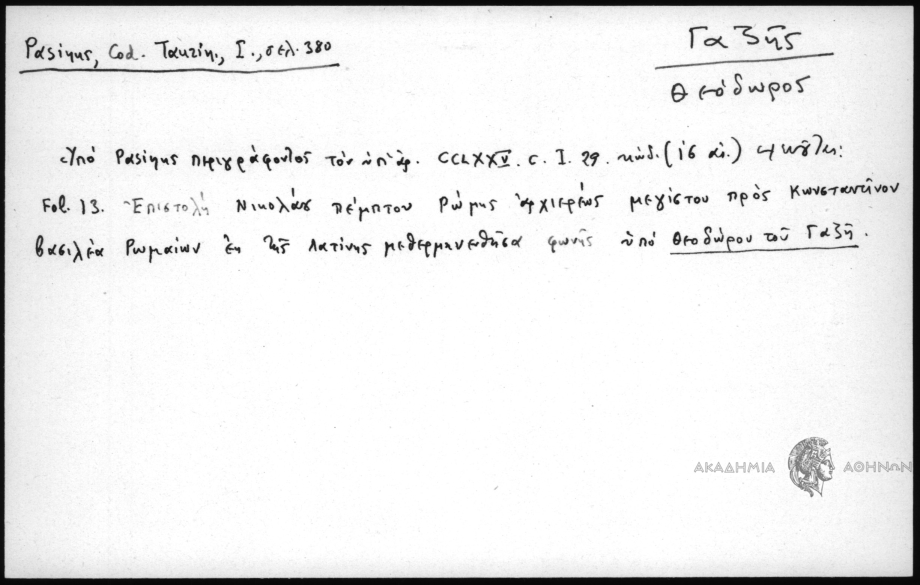 Pasinus, Cod. Taurin., I., σελ. 380
Γαζῆς
Θεόδωρος
Ὑπὸ Pasinus περιγράφοντος τὸν ὑπ' ἀρ. CCLXXV. c. I. 29. κώδ. (ις αἰ.)
Fol. 13. Ἐπιστολὴ Νικολάου πέμπτου Ρώμης ἀρχιερέως μεγίστου πρὸς Κωνσταντῖνον
βασιλέα Ρωμαίων ἐκ τῆς Λατίνης μεθερμηνευθῆσα φωνῆς ὑπὸ Θεοδώρου τοῦ Γαζῆ.
ΑΚΑΔΗΜΙΑ ΑΘΗΝΩΝ